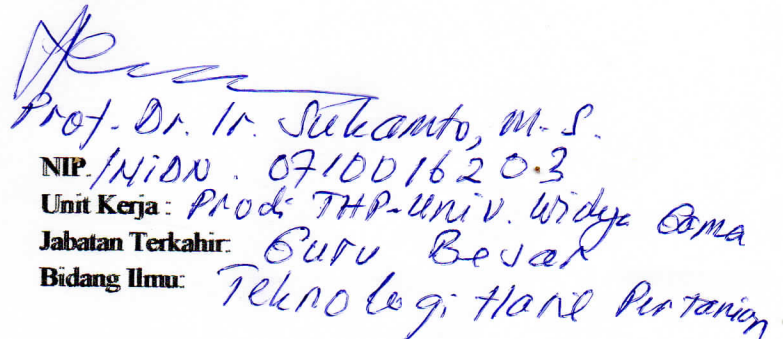 Prof. Dr. Ir. Sukamto, M.S.
NIP./NIDN. 0710016203
Unit Kerja: Prodi THP-Univ. Widya Gama
Jabatan Terkahir: Guru Besar
Bidang Ilmu: Teknologi Hasil Pertanian